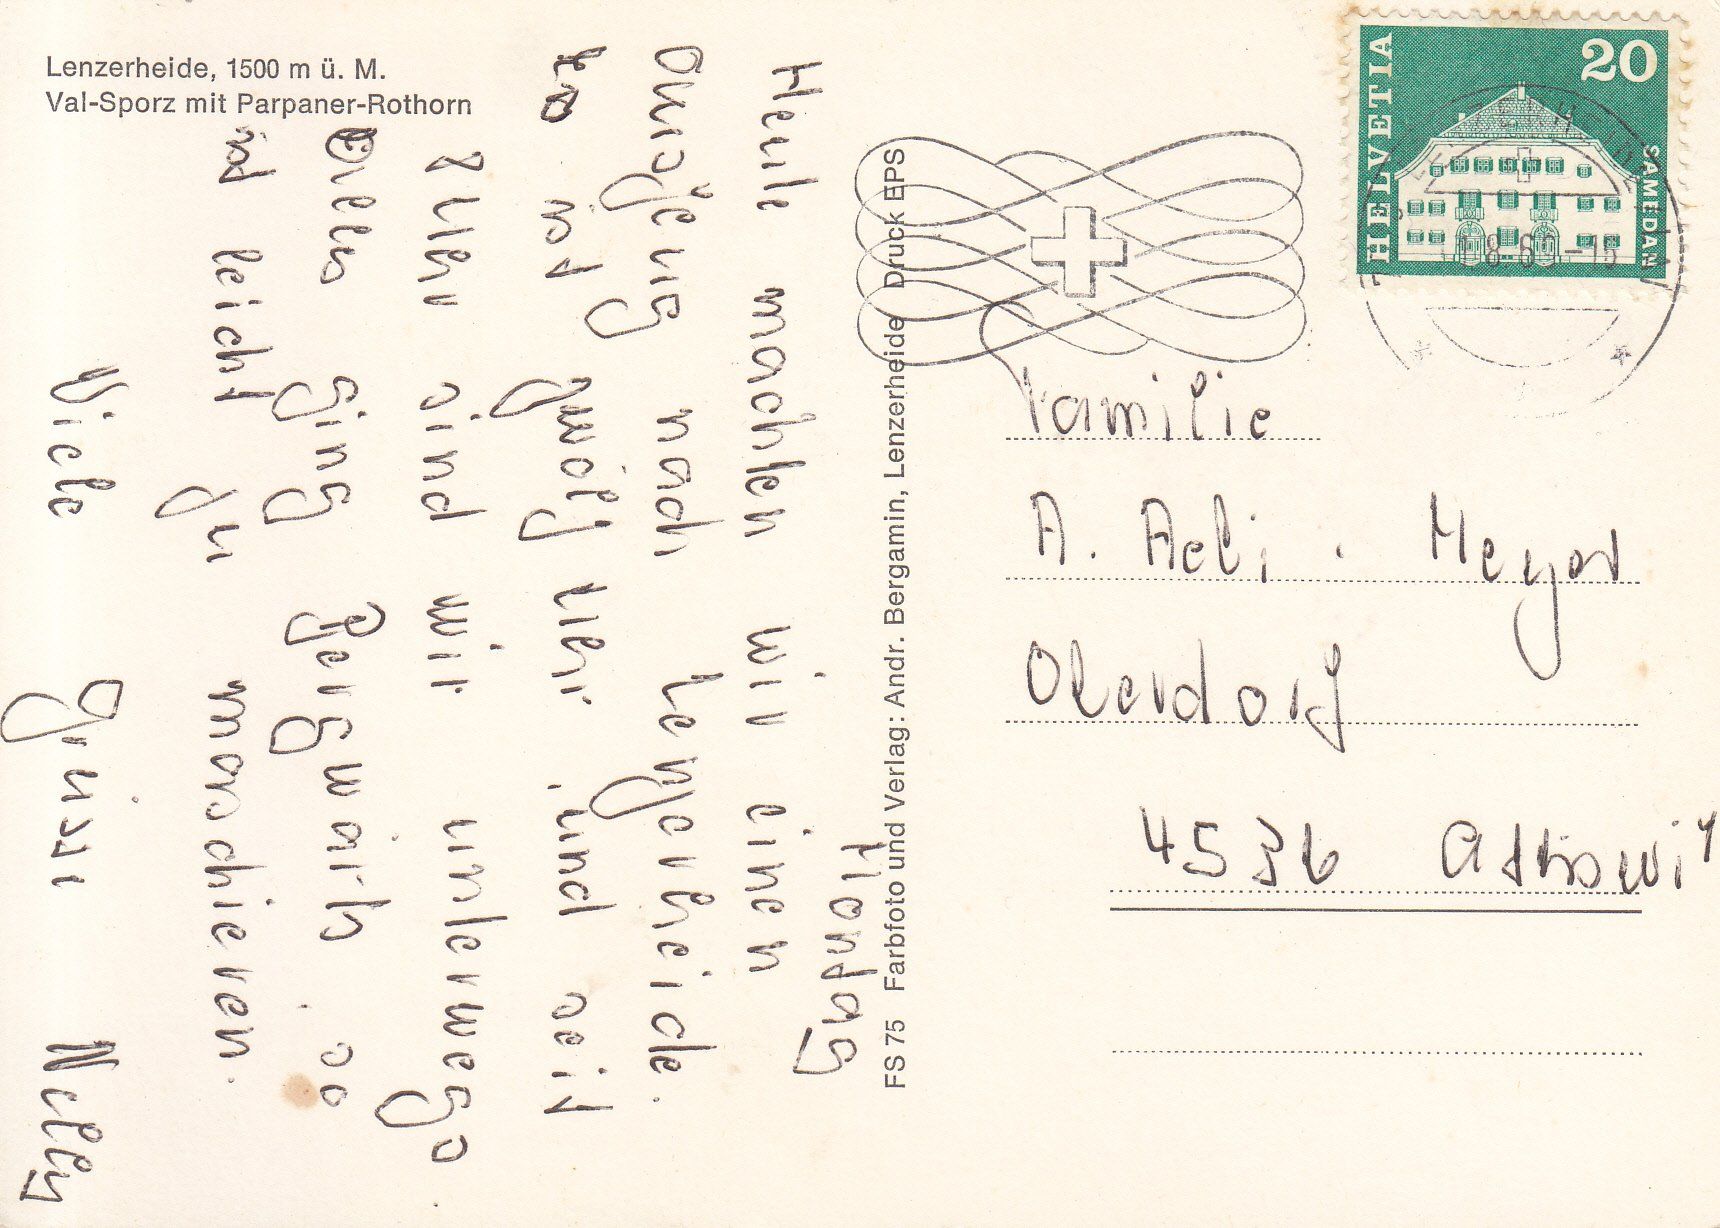 Lenzerheide, 1500 m ü. M.
Val-Sporz mit Parpaner-Rothorn
Montag
Heute machten wir einen
Ausflug nach Lenzerheide.
Es ist zwölf Uhr und seit
8 Uhr sind wir unterwegs
Alles ging bergwärts. es
ist leicht zu marschieren.
Viele Grüsse Nelly
FS 75 Farbfoto und Verlag: Andr. Bergamin, Lenzerheide Druck EPS
HELVETIA
20
SAMEDAN
8·69-15
Familie
A. Aebi · Meyer
Oberdorf
4536 Attiswil